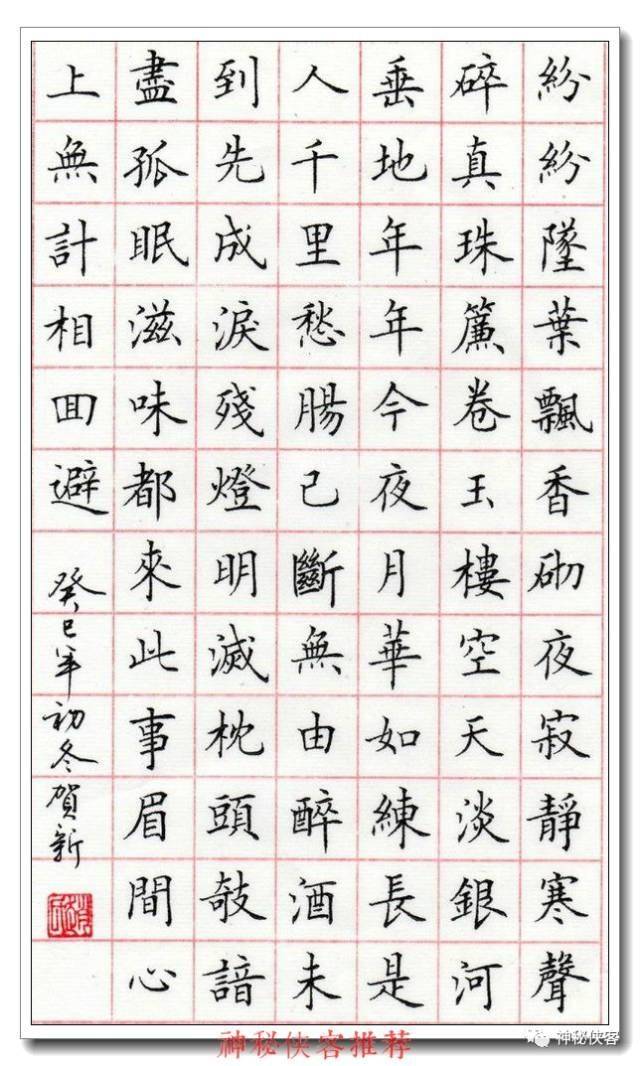 紛紛墬葉飄香砌夜寂靜寒聲
碎真珠簾卷玉樓空天淡銀河
垂地年年今夜月華如練長是
人千里愁腸已斷無由醉酒未
到先成淚殘燈明滅枕頭敧諳
盡孤眠滋味都來此事眉間心
上無計相回避
癸巳年初冬賀新
神秘侠客推荐
神秘侠客